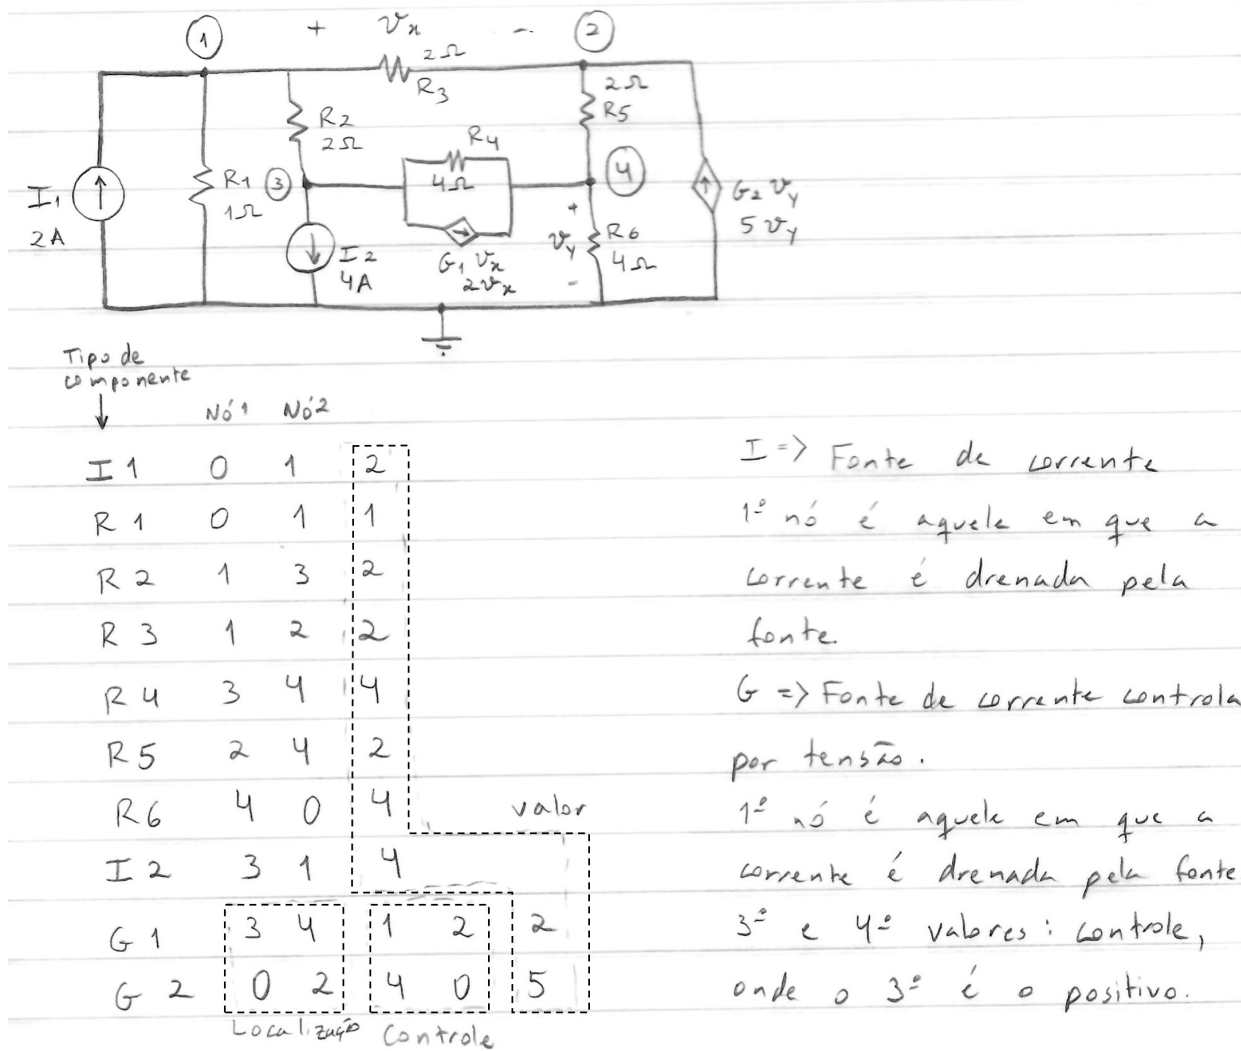 1 + vx - 2
2Ω
R3
2Ω
R5
R2
2Ω
R4
4Ω
I1
2A
R1
1Ω
3
4
G2 vy
5vy
I2
4A
G1 vx
2vx
+
vy
-
R6
4Ω
Tipo de
componente
Nó1 Nó2
I1 0 1 2
R1 0 1 1
R2 1 3 2
R3 1 2 2
R4 3 4 4
R5 2 4 2
R6 4 0 4 valor
I2 3 1 4
G1 3 4 1 2 2
G2 0 2 4 0 5
Localização Controle
I => Fonte de corrente
1º nó é aquele em que a
corrente é drenada pela
fonte.
G => Fonte de corrente controla
por tensão.
1º nó é aquele em que a
corrente é drenada pela fonte
3º e 4º valores: controle,
onde o 3º é o positivo.